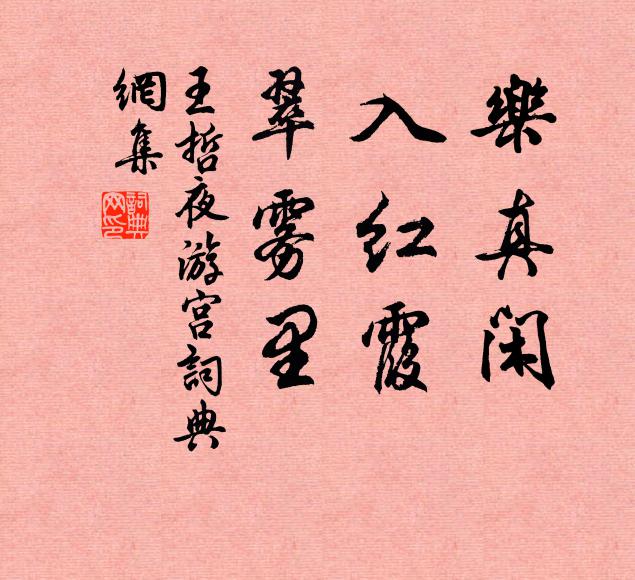 樂真閑
入红霞
翠雾里
王哲夜游宫詞典
網集
詞典
网印